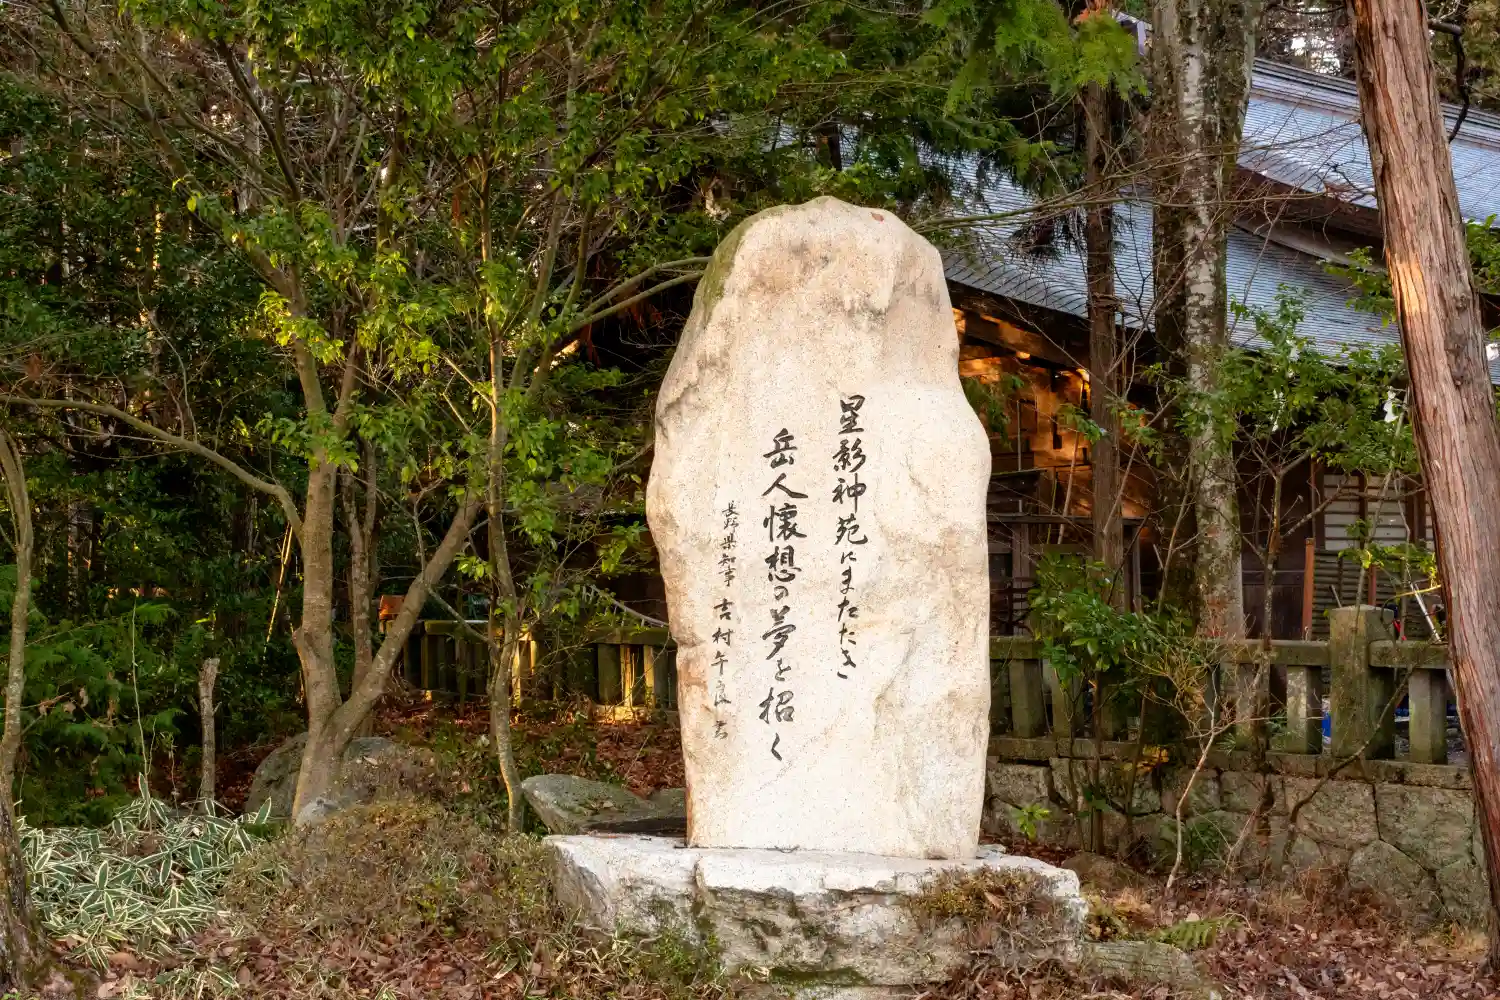 星影神苑にまたたき
岳人懐想の夢を招く
長野県知事 吉村午良 書